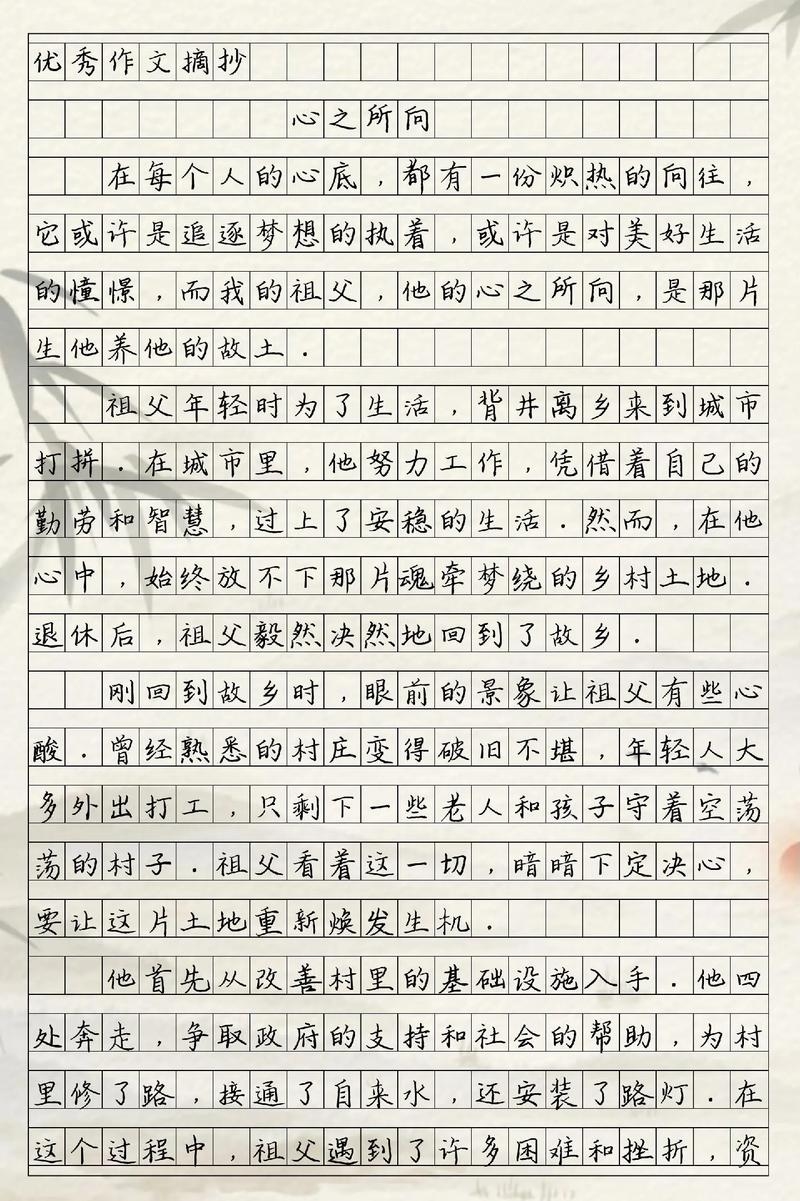 优秀作文摘抄
心之所向
在每个人的心底，都有一份炽热的向往，
它或许是追逐梦想的执着，或许是对美好生活
的憧憬，而我的祖父，他的心之所向，是那片
生他养他的故土．
祖父年轻时为了生活，背井离乡来到城市
打拼．在城市里，他努力工作，凭借着自己的
勤劳和智慧，过上了安稳的生活．然而，在他
心中，始终放不下那片魂牵梦绕的乡村土地．
退休后，祖父毅然决然地回到了故乡．
刚回到故乡时，眼前的景象让祖父有些心
酸．曾经熟悉的村庄变得破旧不堪，年轻人大
多外出打工，只剩下一些老人和孩子守着空荡
荡的村子．祖父看着这一切，暗暗下定决心，
要让这片土地重新焕发生机．
他首先从改善村里的基础设施入手．他四
处奔走，争取政府的支持和社会的帮助，为村
里修了路，接通了自来水，还安装了路灯．在
这个过程中，祖父遇到了许多困难和挫折，资